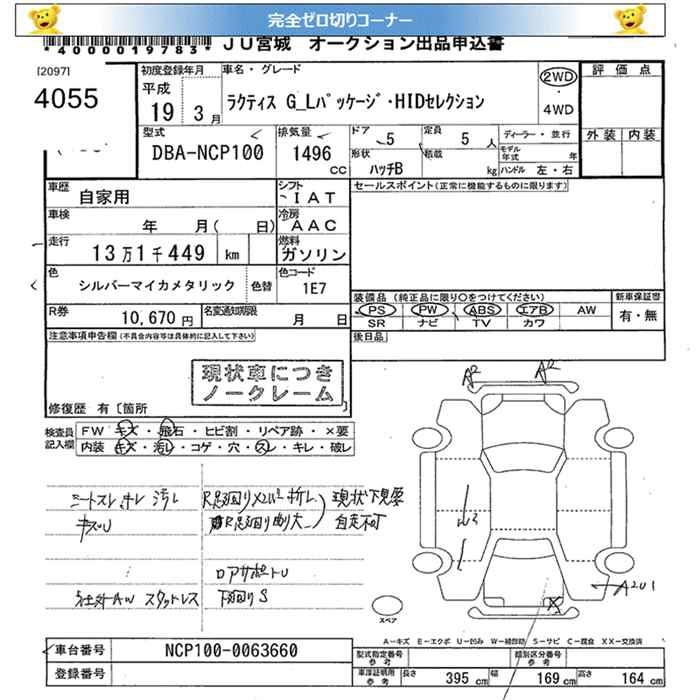 完全ゼロ切りコーナー
*4000019783* JU宮城 オークション出品申込書
[2097]
4055
初度登録年月 平成 19 3 月
車名・グレード
ラクティス G_Lパッケージ・HIDセレクション
2WD ・ 4WD
評価点
外装 内装
型式 DBA-NCP100
排気量 1496 CC
ドア 5
定員 5 人
形状 ハッチB
積載 kg
ディーラー・並行
モデル年式 年
ハンドル 左・右
車歴 自家用
シフト IAT
セールスポイント(正常に機能するものに限ります)
車検 年 月( 日)
冷房 AAC
走行 13万1千449 km
燃料 ガソリン
色 シルバーマイカメタリック
色替
色コード 1E7
R券 10,670円
名変通知期限 月 日
装備品 (純正品に限り○をつけてください)
PS PW ABS エアB AW
SR ナビ TV カワ
新車保証書 有・無
注意事項申告欄(不具合内容等は具体的に記入して下さい)
後日品
現状車につき
ノークレーム
修復歴 有〔箇所 〕
検査員記入欄
FW キズ・飛石・ヒビ割・リペア跡・×要
内装 キズ・汚レ・コゲ・穴・スレ・キレ・破レ
A2 A2
シートスレ キレ 汚レ
キズU
現状下見要
自走不可
ロアサポートU
社外AW スタッドレス
下廻りS
A2U1
スペア
A－キズ E－エクボ U－凹み W－補修跡 S－サビ C－腐食 XX－交換済
車台番号 NCP100-0063660
登録番号
型式指定番号 参考
類別区分番号 参考
車庫証明用 参考 長さ 395 cm 幅 169 cm 高さ 164 cm